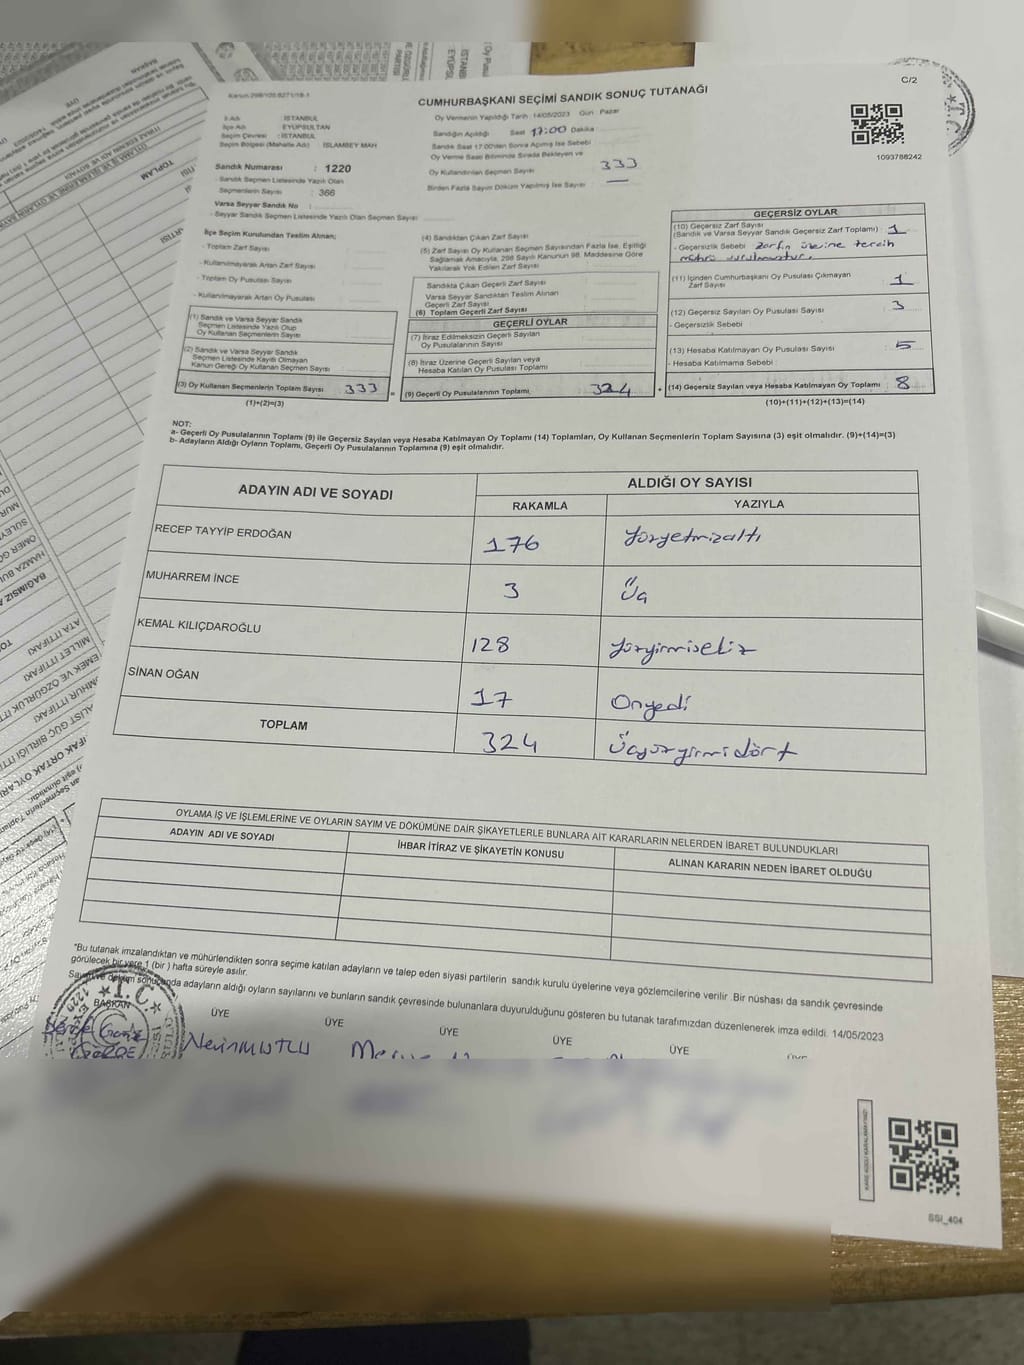 C/2
CUMHURBAŞKANI SEÇİMİ SANDIK SONUÇ TUTANAĞI
İli Adı : İSTANBUL
İlçe Adı : EYÜPSULTAN
Seçim Çevresi : İSTANBUL
Seçim Bölgesi (Mahalle Adı) : İSLAMBEY MAH
Sandık Numarası : 1220
Sandık Seçmen Listesinde Yazılı Olan
Seçmenlerin Sayısı : 366
Varsa Seyyar Sandık No :
- Seyyar Sandık Seçmen Listesinde Yazılı Olan Seçmen Sayısı
Oy Vermenin Yapıldığı Tarih : 14/05/2023 Gün Pazar
Sandığın Açıldığı Saat 17:00 Dakika
Sandık Saat 17.00'den Sonra Açılmış İse Sebebi
Oy Verme Saati Bitiminde Sırada Bekleyen ve
Oy Kullandırılan Seçmen Sayısı 333
Birden Fazla Sayım Döküm Yapılmış İse Sayısı —
1093788242
İlçe Seçim Kurulundan Teslim Alınan;
- Toplam Zarf Sayısı
- Kullanılmayarak Artan Zarf Sayısı
- Toplam Oy Pusulası Sayısı
- Kullanılmayarak Artan Oy Pusulası
(1) Sandık ve Varsa Seyyar Sandık
Seçmen Listesinde Yazılı Olup
Oy Kullanan Seçmenlerin Sayısı
(2) Sandık ve Varsa Seyyar Sandık
Seçmen Listesinde Kayıtlı Olmayan
Kanun Gereği Oy Kullanan Seçmen Sayısı
(3) Oy Kullanan Seçmenlerin Toplam Sayısı 333
(1)+(2)=(3)
(4) Sandıktan Çıkan Zarf Sayısı
(5) Zarf Sayısı Oy Kullanan Seçmen Sayısından Fazla İse, Eşitliği
Sağlamak Amacıyla, 298 Sayılı Kanunun 98. Maddesine Göre
Yakılarak Yok Edilen Zarf Sayısı
Sandıkta Çıkan Geçerli Zarf Sayısı
Varsa Seyyar Sandıktan Teslim Alınan
Geçerli Zarf Sayısı
(6) Toplam Geçerli Zarf Sayısı
GEÇERLİ OYLAR
(7) İtiraz Edilmeksizin Geçerli Sayılan
Oy Pusulalarının Sayısı
(8) İtiraz Üzerine Geçerli Sayılan veya
Hesaba Katılan Oy Pusulası Toplamı
(9) Geçerli Oy Pusulalarının Toplamı 324
GEÇERSİZ OYLAR
(10) Geçersiz Zarf Sayısı
(Sandık ve Varsa Seyyar Sandık Geçersiz Zarf Toplamı) 1
- Geçersizlik Sebebi zarfın üzerine tercih
mührü vurulmuştur.
(11) İçinden Cumhurbaşkanı Oy Pusulası Çıkmayan
Zarf Sayısı 1
(12) Geçersiz Sayılan Oy Pusulası Sayısı 3
- Geçersizlik Sebebi
(13) Hesaba Katılmayan Oy Pusulası Sayısı : 5
- Hesaba Katılmama Sebebi
(14) Geçersiz Sayılan veya Hesaba Katılmayan Oy Toplamı 8
(10)+(11)+(12)+(13)=(14)
NOT:
a- Geçerli Oy Pusulalarının Toplamı (9) ile Geçersiz Sayılan veya Hesaba Katılmayan Oy Toplamı (14) Toplamları, Oy Kullanan Seçmenlerin Toplam Sayısına (3) eşit olmalıdır. (9)+(14)=(3)
b- Adayların Aldığı Oyların Toplamı, Geçerli Oy Pusulalarının Toplamına (9) eşit olmalıdır.
ADAYIN ADI VE SOYADI
ALDIĞI OY SAYISI
RAKAMLA YAZIYLA
RECEP TAYYİP ERDOĞAN 176 Yüzyetmişaltı
MUHARREM İNCE 3 Üç
KEMAL KILIÇDAROĞLU 128 Yüzyirmisekiz
SİNAN OĞAN 17 Onyedi
TOPLAM 324 Üçyüzyirmidört
OYLAMA İŞ VE İŞLEMLERİNE VE OYLARIN SAYIM VE DÖKÜMÜNE DAİR ŞİKAYETLERLE BUNLARA AİT KARARLARIN NELERDEN İBARET BULUNDUKLARI
ADAYIN ADI VE SOYADI İHBAR İTİRAZ VE ŞİKAYETİN KONUSU ALINAN KARARIN NEDEN İBARET OLDUĞU
*Bu tutanak imzalandıktan ve mühürlendikten sonra seçime katılan adayların ve talep eden siyasi partilerin sandık kurulu üyelerine veya gözlemcilerine verilir. Bir nüshası da sandık çevresinde
görülecek bir yere 1 (bir) hafta süreyle asılır.
Sayım ve döküm sonucunda adayların aldığı oyların sayılarını ve bunların sandık çevresinde bulunanlara duyurulduğunu gösteren bu tutanak tarafımızdan düzenlenerek imza edildi. 14/05/2023
BAŞKAN ÜYE ÜYE ÜYE ÜYE ÜYE
T.C.
SSI_404